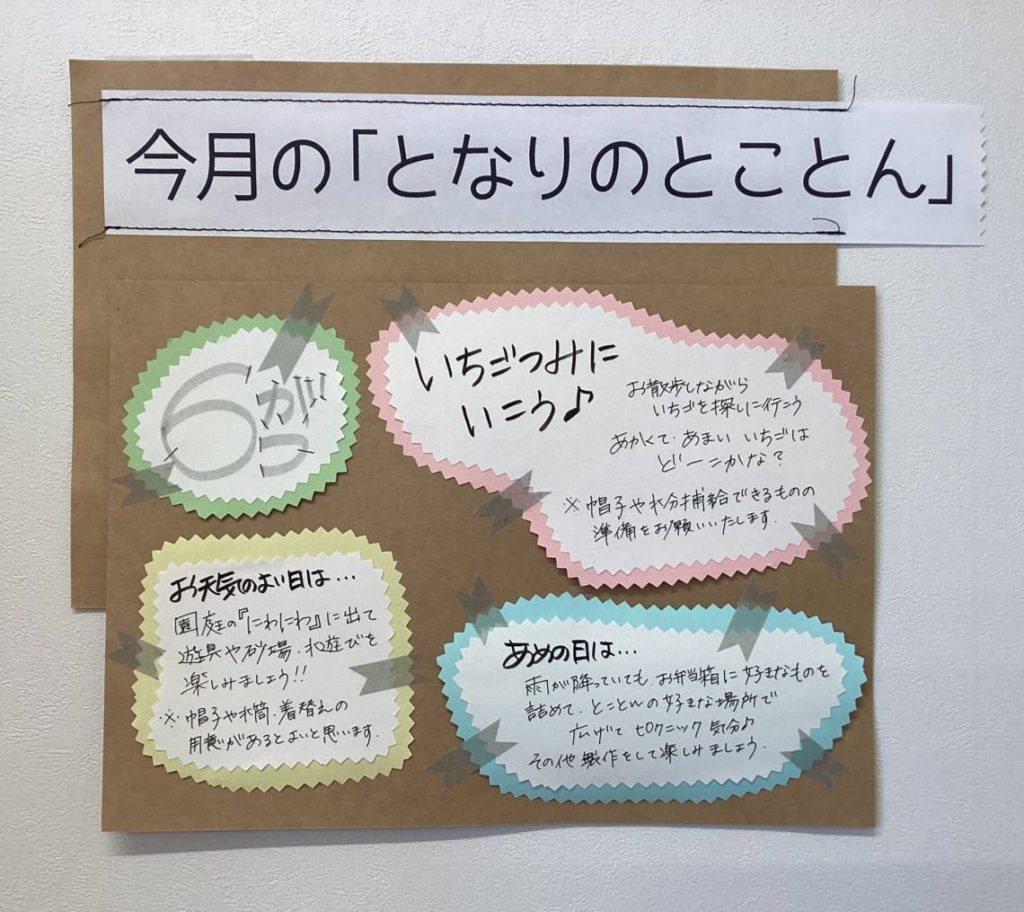 今月の「となりのとことん」
6がつ
いちごつみに
いこう♪
お散歩しながら
いちごを探しに行こう
あかくて、あまい いちごは
どーこかな?
※帽子や水分補給できるものの
準備をお願いいたします。
お天気のよい日は…
園庭の『にわにわ』に出て
遊具や砂場、水遊びを
楽しみましょう!!
※帽子や水筒、着替えの
用意があるとよいと思います。
あめの日は…
雨が降っていても、お弁当箱に好きなものを
詰めて、とことんの好きな場所で
広げて ピクニック気分♪
その他製作をして楽しみましょう。